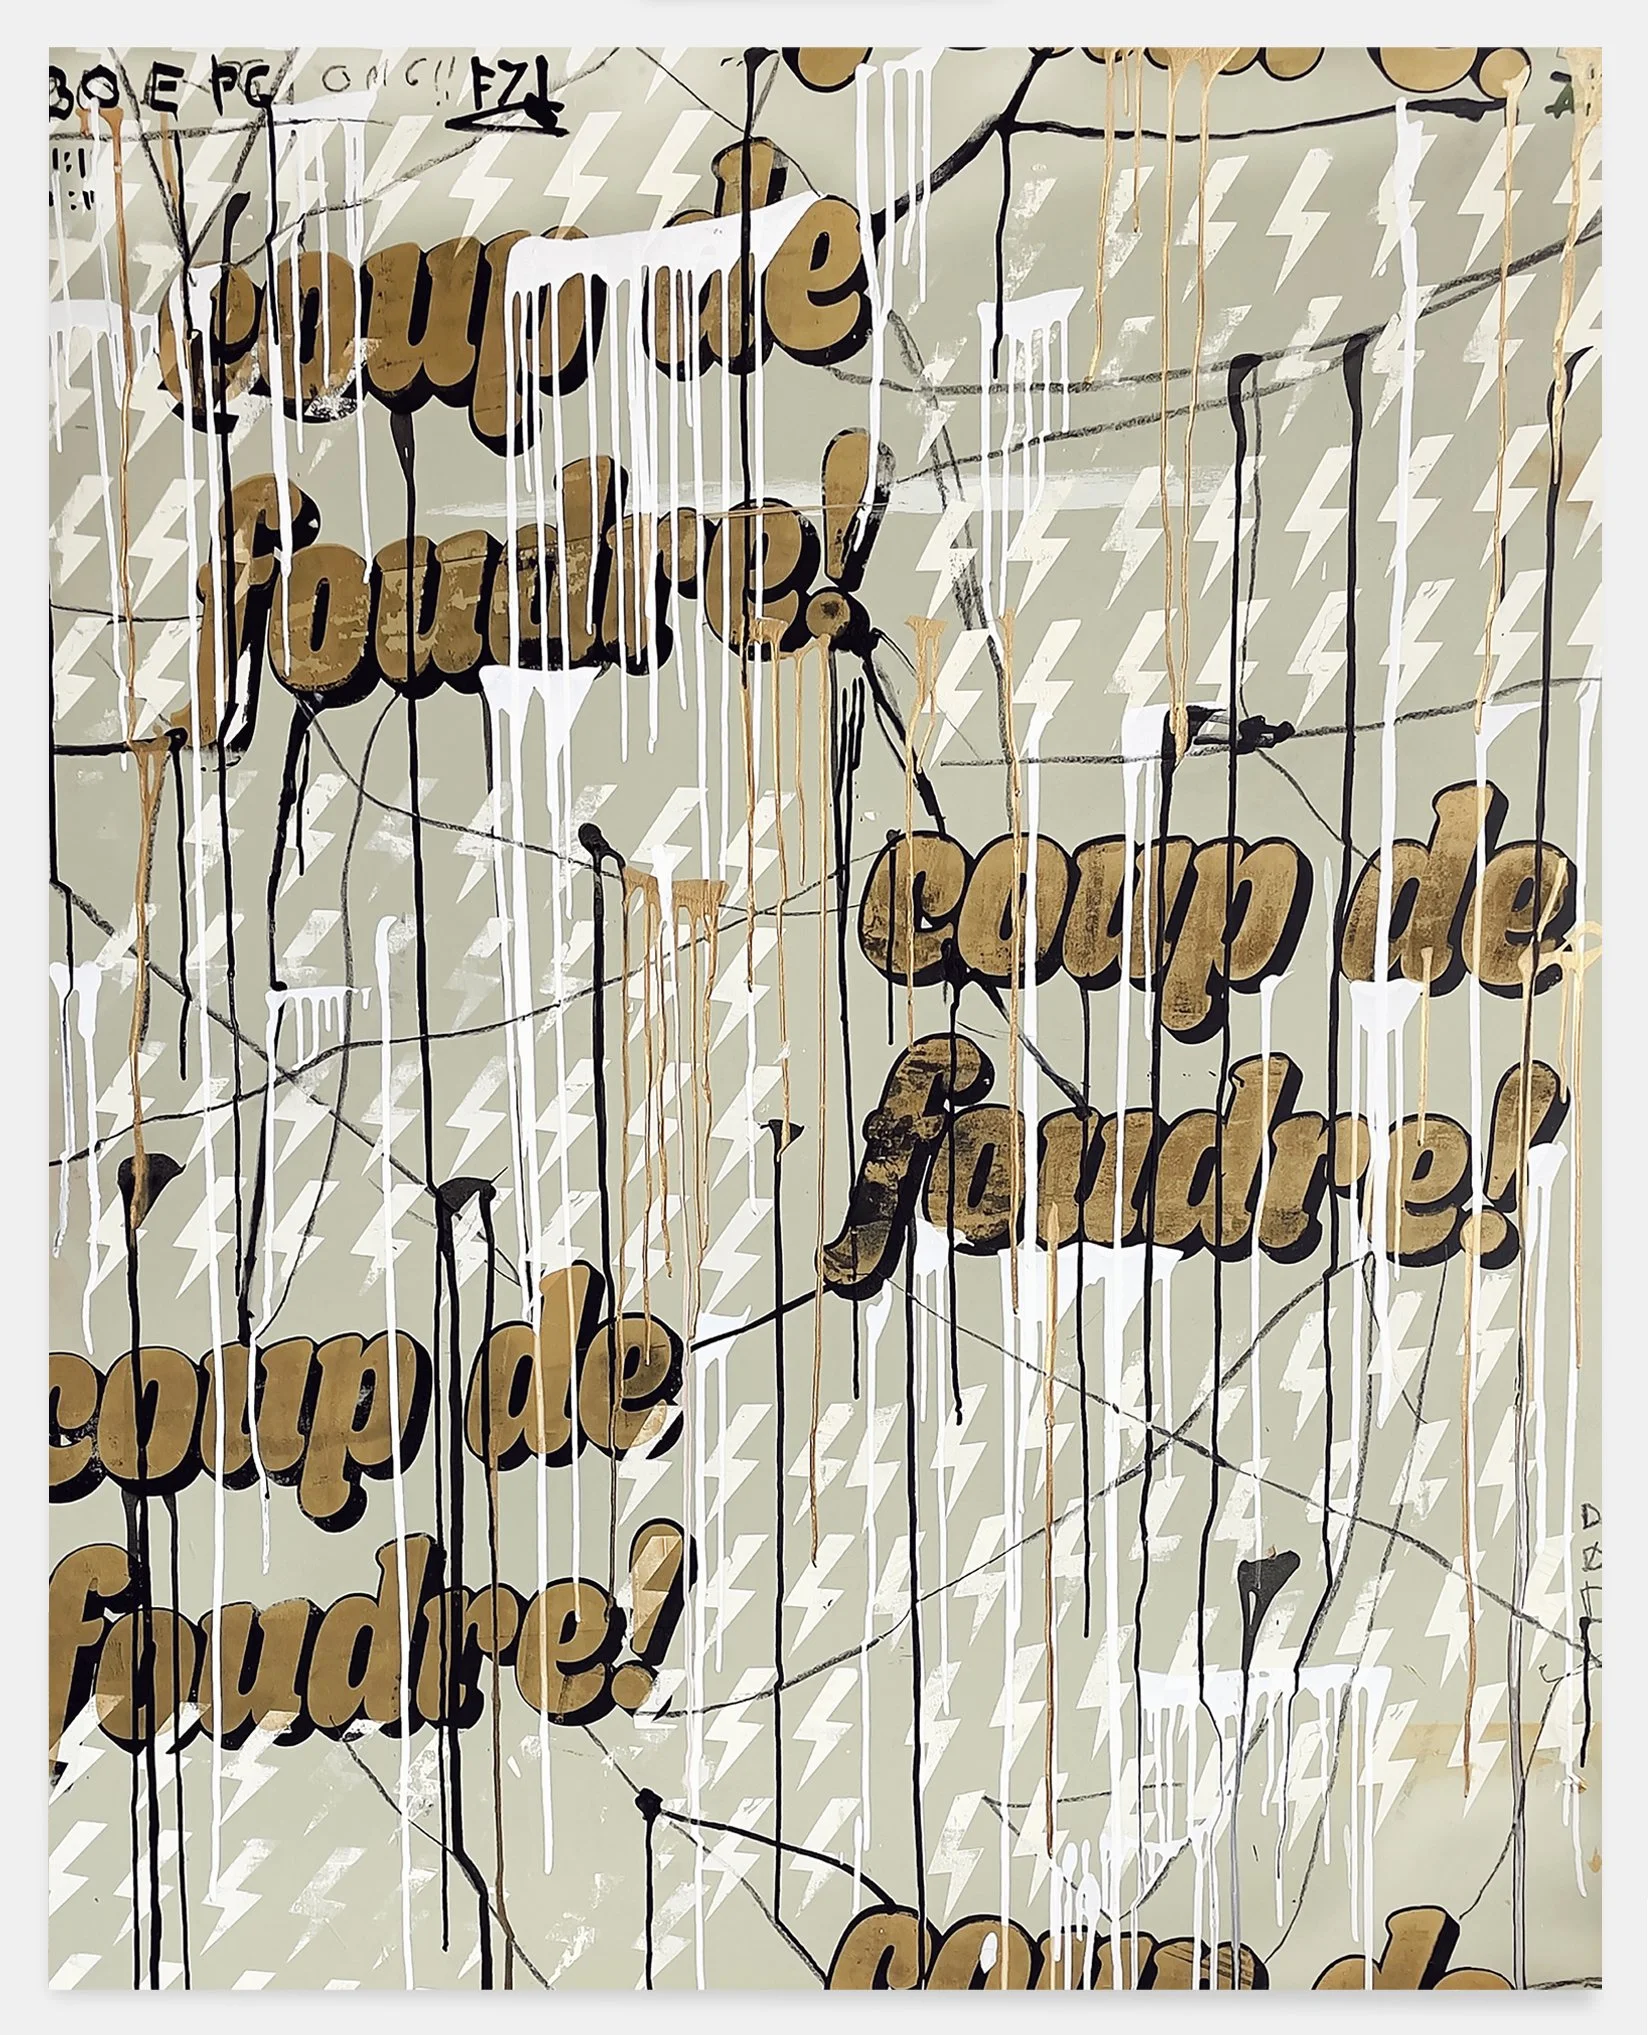 OMG!!
coup de
foudre!
coup de
foudre!
coup de
foudre!
coup de